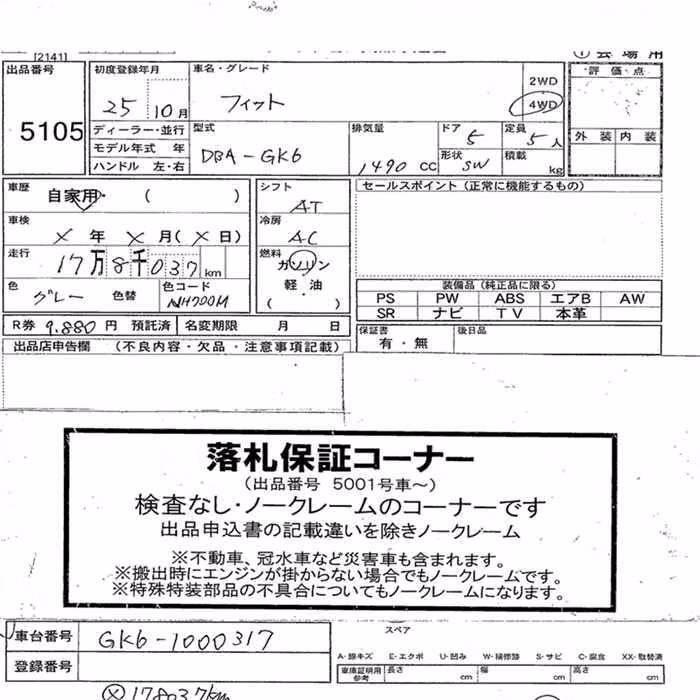 [2141]
① 会 場 用
出品番号 5105
初度登録年月 25 10 月
車名・グレード フィット
2WD
4WD
評 価 点
外 装 内 装
ディーラー・並行
モデル年式 年
ハンドル 左・右
型式 DBA-GK6
排気量 1490 CC
ドア 5
定員 5 人
形状 SW
積載 kg
車歴 自家用・ ( )
車検 X 年 X 月 ( X 日)
走行 17万8千037 km
色 グレー 色替
色コード NH700M
シフト AT
冷房 AC
燃料 ガソリン
軽・油
( )
セールスポイント (正常に機能するもの)
装備品 (純正品に限る)
PS PW ABS エアB AW
SR ナビ TV 本革
R券 9,880 円 預託済 名変期限 月 日
保証書 有・無
後日品
出品店申告欄 (不良内容・欠品・注意事項記載)
落札保証コーナー
(出品番号 5001号車~)
検査なし・ノークレームのコーナーです
出品申込書の記載違いを除きノークレーム
※不動車、冠水車など災害車も含まれます。
※搬出時にエンジンが掛からない場合でもノークレームです。
※特殊特装部品の不具合についてもノークレームになります。
車台番号 GK6-1000317
登録番号
スペア
A-線キズ E-エクボ U-凹み W-補修跡 S-サビ C-腐食 XX-取替済
車庫証明用参考 長さ cm 幅 cm 高さ cm
Ⓧ178037km